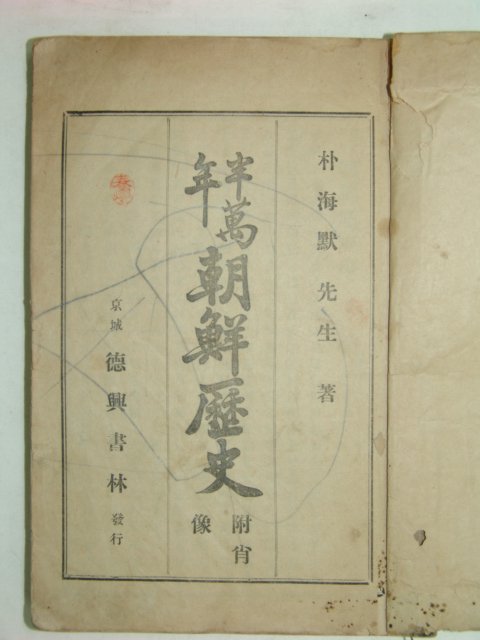 朴海默先生 著
半萬年朝鮮歷史 附肖像
京城 德興書林 發行